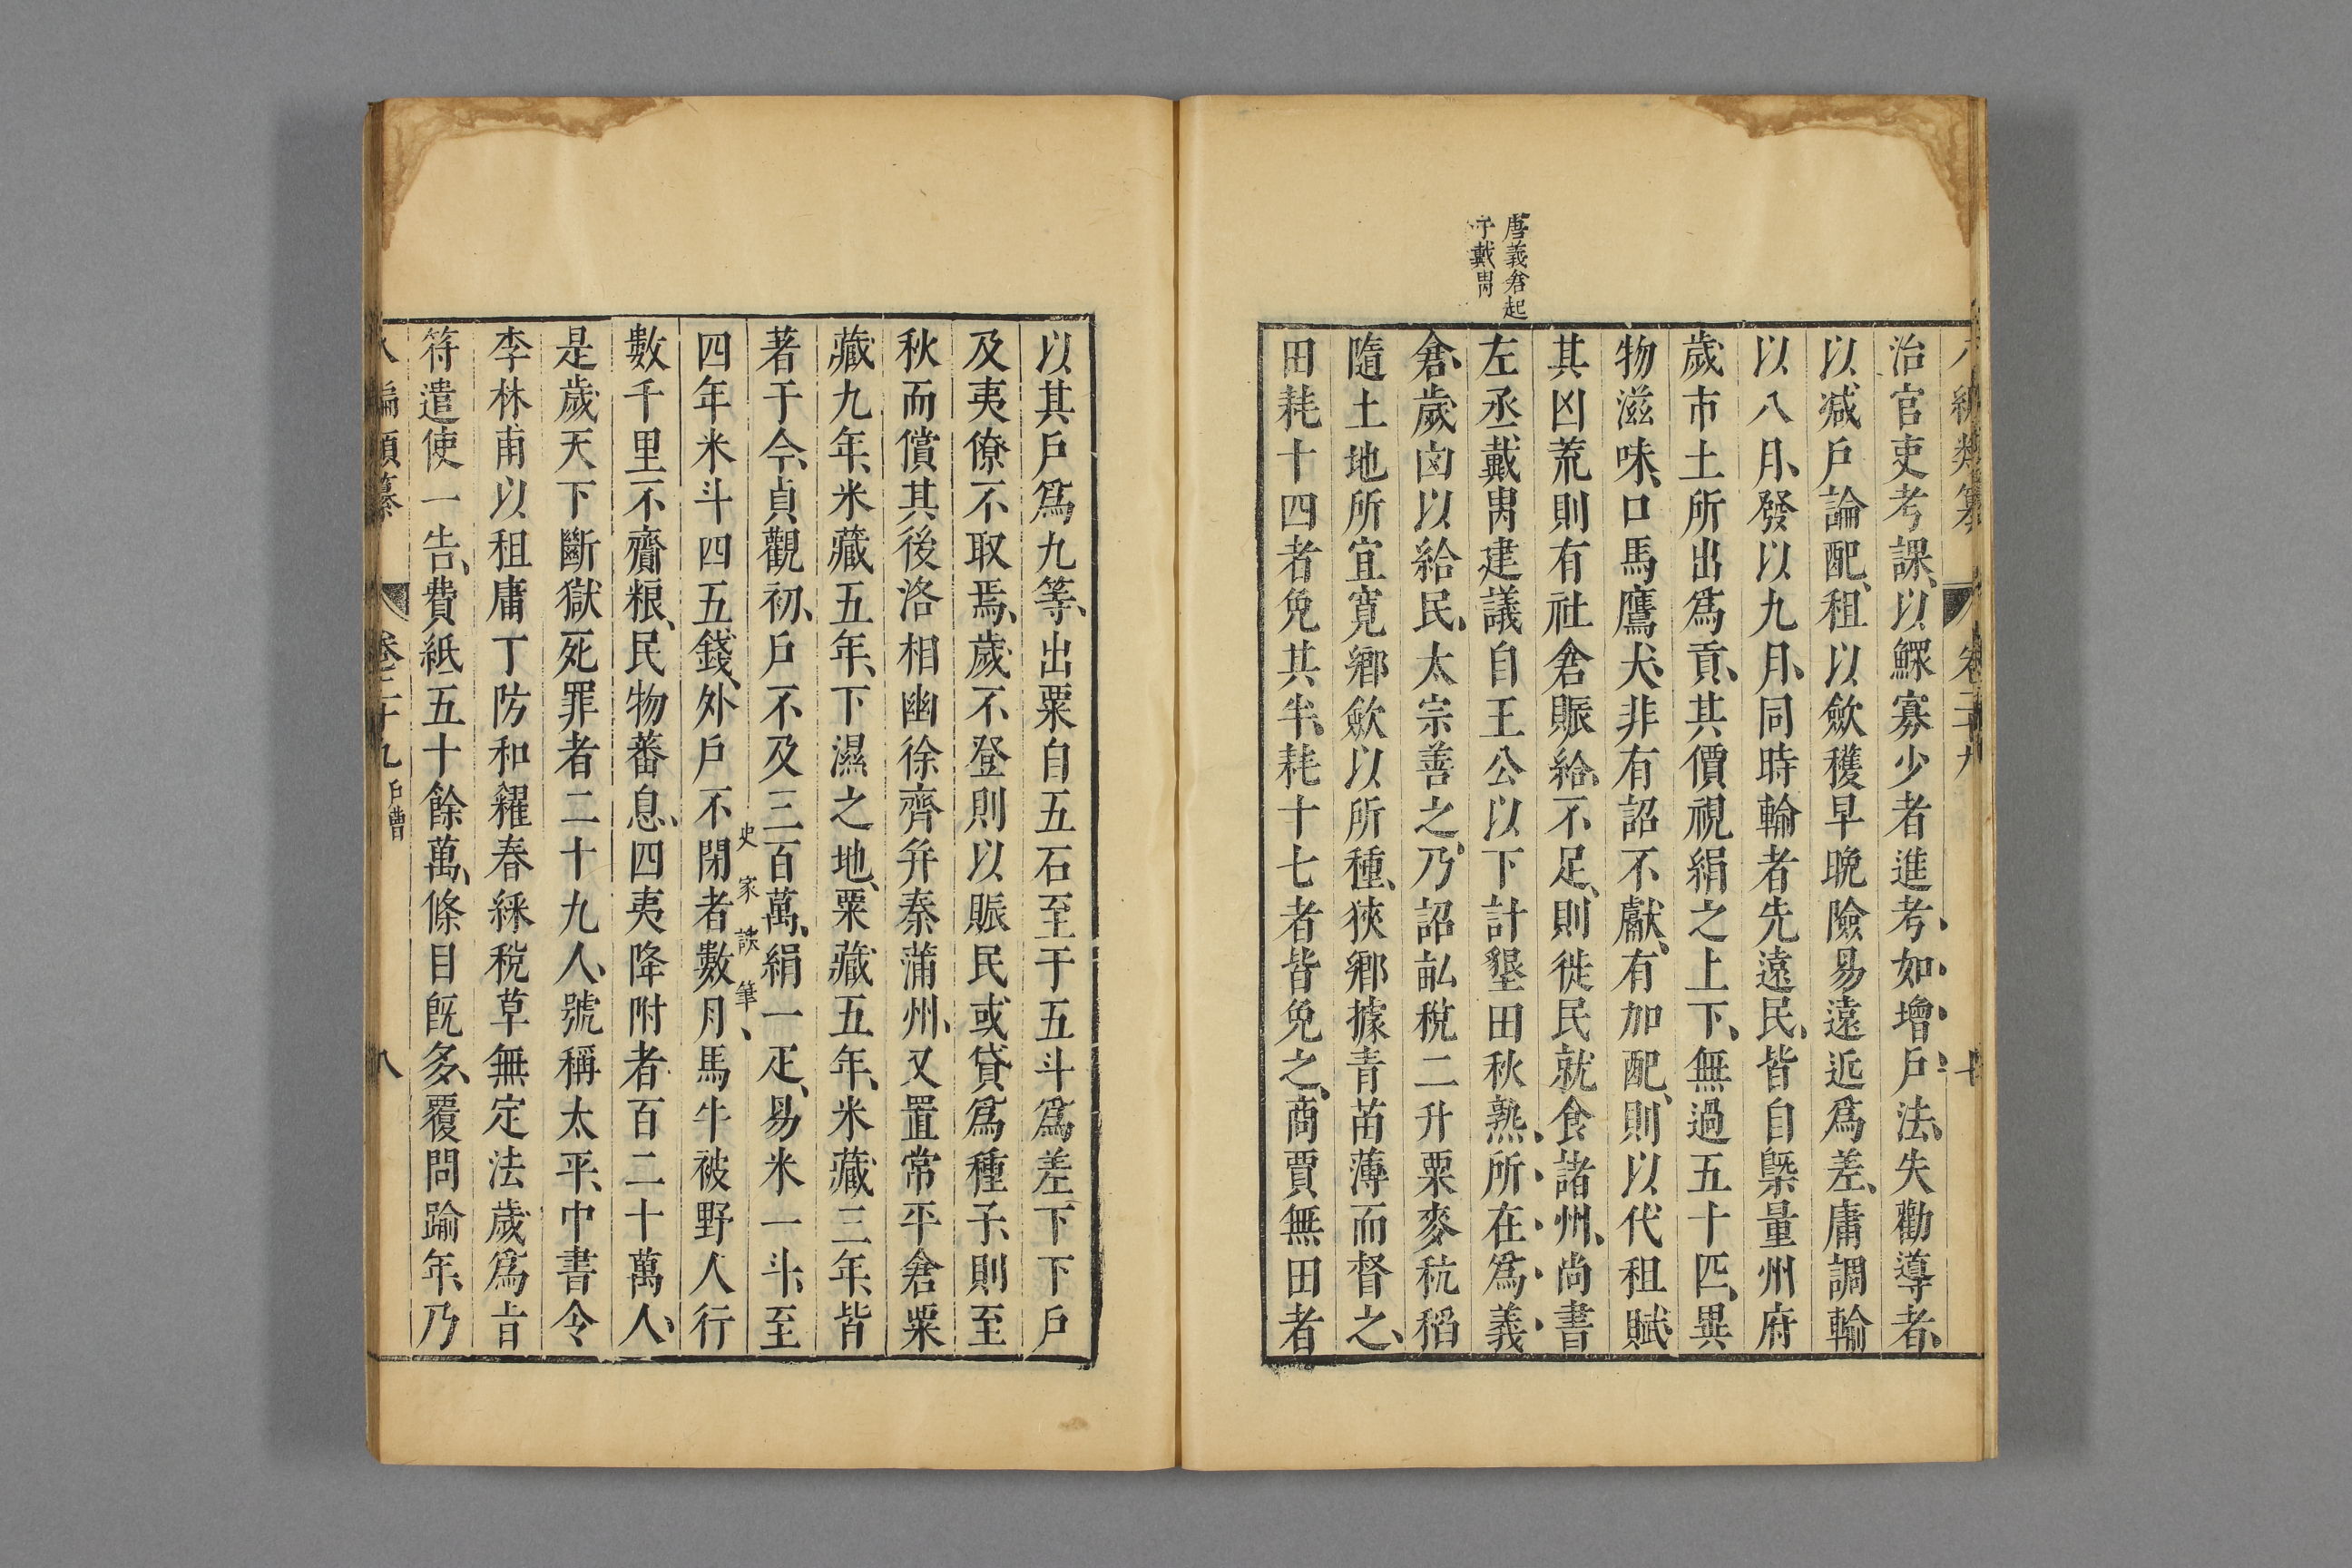 八編類纂
卷二十九
唐義倉起
于戴冑
治官吏考課、以鰥寡少者進考、如增戶法、失勸導者、
以減戶論配、租以斂穫早晚險易遠近爲差、庸調輸
以八月、發以九月、同時輸者先遠民、皆自槩量州府
歲市土所出爲貢、其價視絹之上下、無過五十匹、異
物滋味、口馬鷹犬、非有詔不獻、有加配、則以代租賦
其凶荒則有社倉賑給、不足、則徙民就食諸州、尚書
左丞戴冑建議自王公以下計墾田秋熟、所在爲義
倉、歲凶以給民、太宗善之、乃詔畝稅二升粟麥秔稻
隨土地所宜寬鄉歛以所種、狹鄉據青苗薄而督之、
田耗十四者免其半、耗十七者皆免之、商賈無田者
以其戶爲九等、出粟自五石至于五斗爲差下下戶
及夷僚不取焉、歲不登則以賑民或貸爲種子、則至
秋而償其後洛相幽徐齊并秦蒲州、又置常平倉粟
藏九年、米藏五年、下濕之地、粟藏五年、米藏三年、皆
著于令、貞觀初、戶不及三百萬、絹一疋、易米一斗、至
史家謏筆、
四年米斗四五錢、外戶不閉者數月馬牛被野人行
數千里不齎粮、民物蕃息、四夷降附者百二十萬人、
是歲天下斷獄死罪者二十九人、號稱太平、中書令
李林甫以租庸丁防和糴春綵稅草無定法歲爲旨
符遣使一告、費紙五十餘萬、條目旣多、覆問踰年、乃
八編類纂
卷二十九
戶曹
八